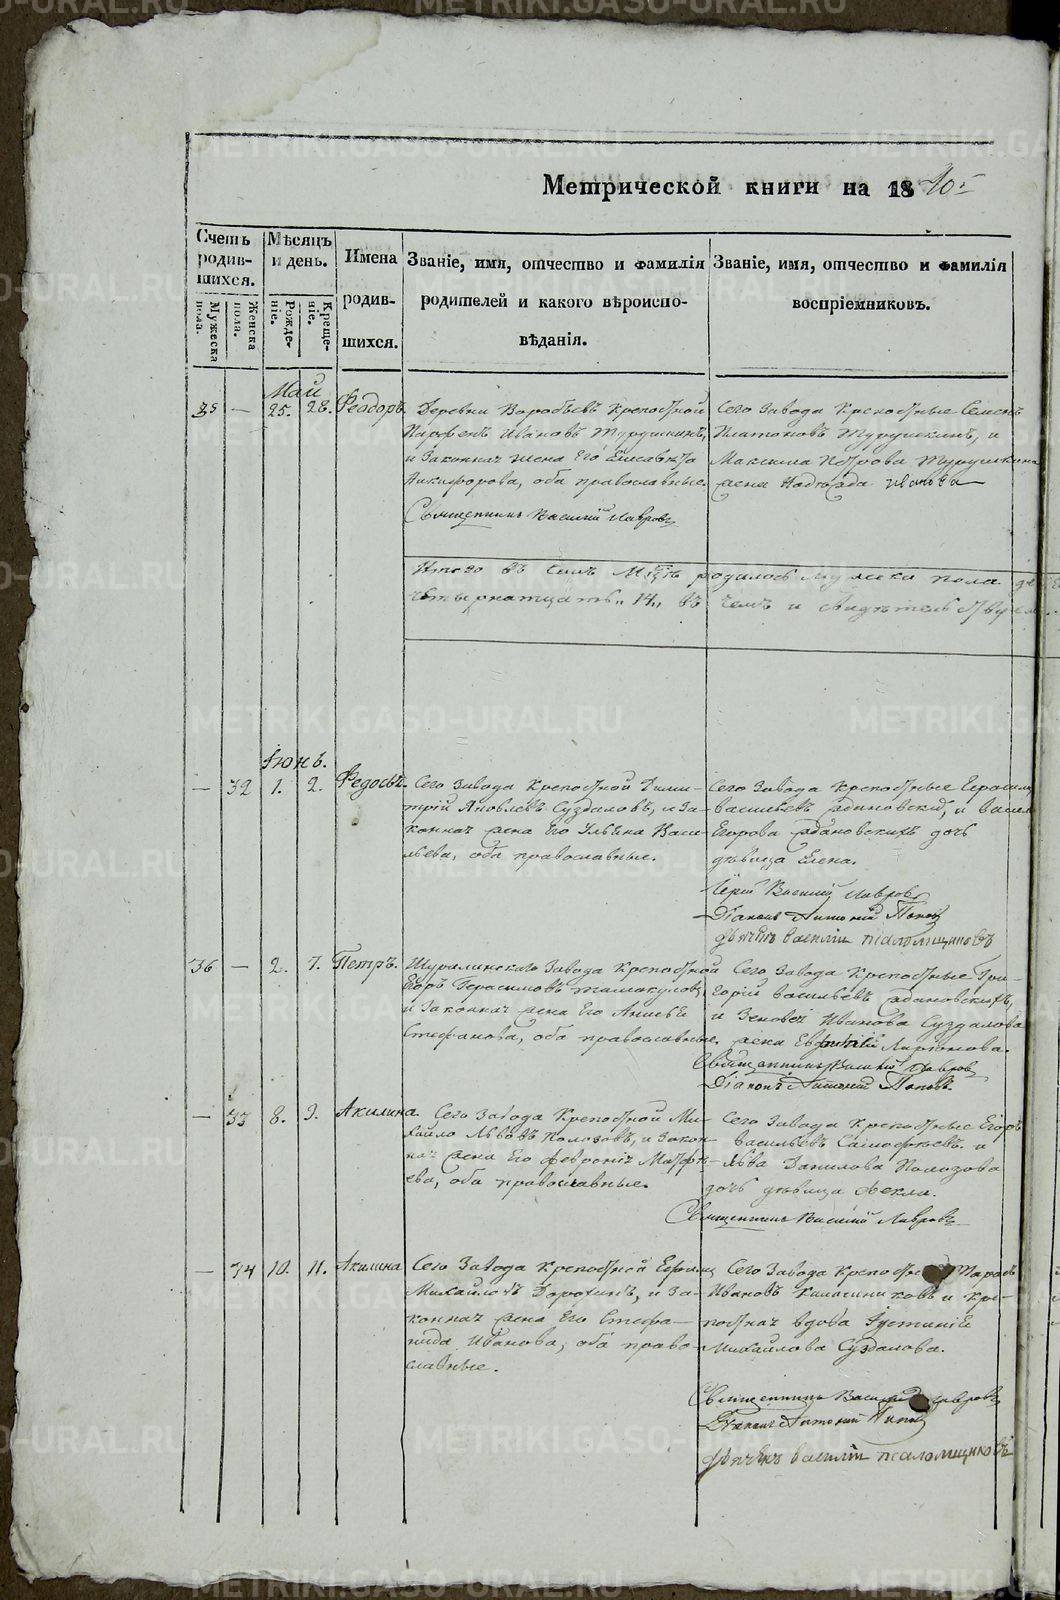 Метрической книги на 18 40 г
Счетъ родив-шихся.
Мужеска пола.
Женска пола.
Мѣсяцъ и день.
Рожде-ніе.
Креще-ніе.
Имена
родив-
шихся.
Званіе, имя, отчество и фамилія
родителей и какого вѣроиспо-
вѣданія.
Званіе, имя, отчество и фамилія
воспріемниковъ.
Май
35 — 25. 28. Феодоръ.
Деревни Воробьевъ Крепостной
Парфенъ Ивановъ
и Законная жена Его Елисавета
Анкифорова, оба православные.
Священникъ Василій Лавровъ
Сего Завода Крепостные Семенъ
Платоновъ и
Максима Петрова
жена Надежда Иванова
Итого въ семъ М-цѣ родилось мужска пола
четырнатцать „14„ въ чемъ и Свидѣтельствуемъ
Іюнь.
— 32 1. 2. Федосья.
Сего Завода Крепостной Дими-
трій Яковлевъ Суздаловъ, и За-
конная жена Его Ульяна Васи-
льева, оба православные.
Сего Завода Крепостные Герасимъ
Васильевъ и Васил
Егорова дочь
дѣвица Елена.
Іерей Василій Лавровъ
Діаконъ Антоній Поповъ
дьячекъ василій псаломщиковъ
36 — 2. 7. Петръ.
Шуралинскаго Завода Крепостной
Егоръ Герасимовъ
и Законная жена Его Анисья
Стефанова, оба православные.
Сего Завода Крепостные Гри-
горій Васильевъ
и Зеновей Иванова Суздалова
жена Ларіонова.
Священникъ Василій Лавровъ
Діаконъ Антоній Поповъ
— 33 8. 9. Акилина
Сего Завода Крепостной Ми-
хайло Львовъ Полозовъ, и Закон-
ная жена Его Февронія Матфѣ-
ева, оба православные.
Сего Завода Крепостные Егоръ
Васильевъ и
Льва Данилова Полозова
дочь дѣвица Фекла.
Священникъ Василій Лавровъ
— 34 10. 11. Акилина
Сего Завода Крепостной Ефимъ
Михайловъ Дорофинъ, и За-
конная жена Его Стефа-
нида Иванова, оба право-
славные.
Сего Завода Тарасъ
Ивановъ и Кре-
постная вдова Іустинія
Михайлова Суздалова.
Священникъ Василій Лавровъ
Діаконъ Антоній Поповъ
дьячекъ василій псаломщиковъ
METRIKI.GASO-URAL.RU